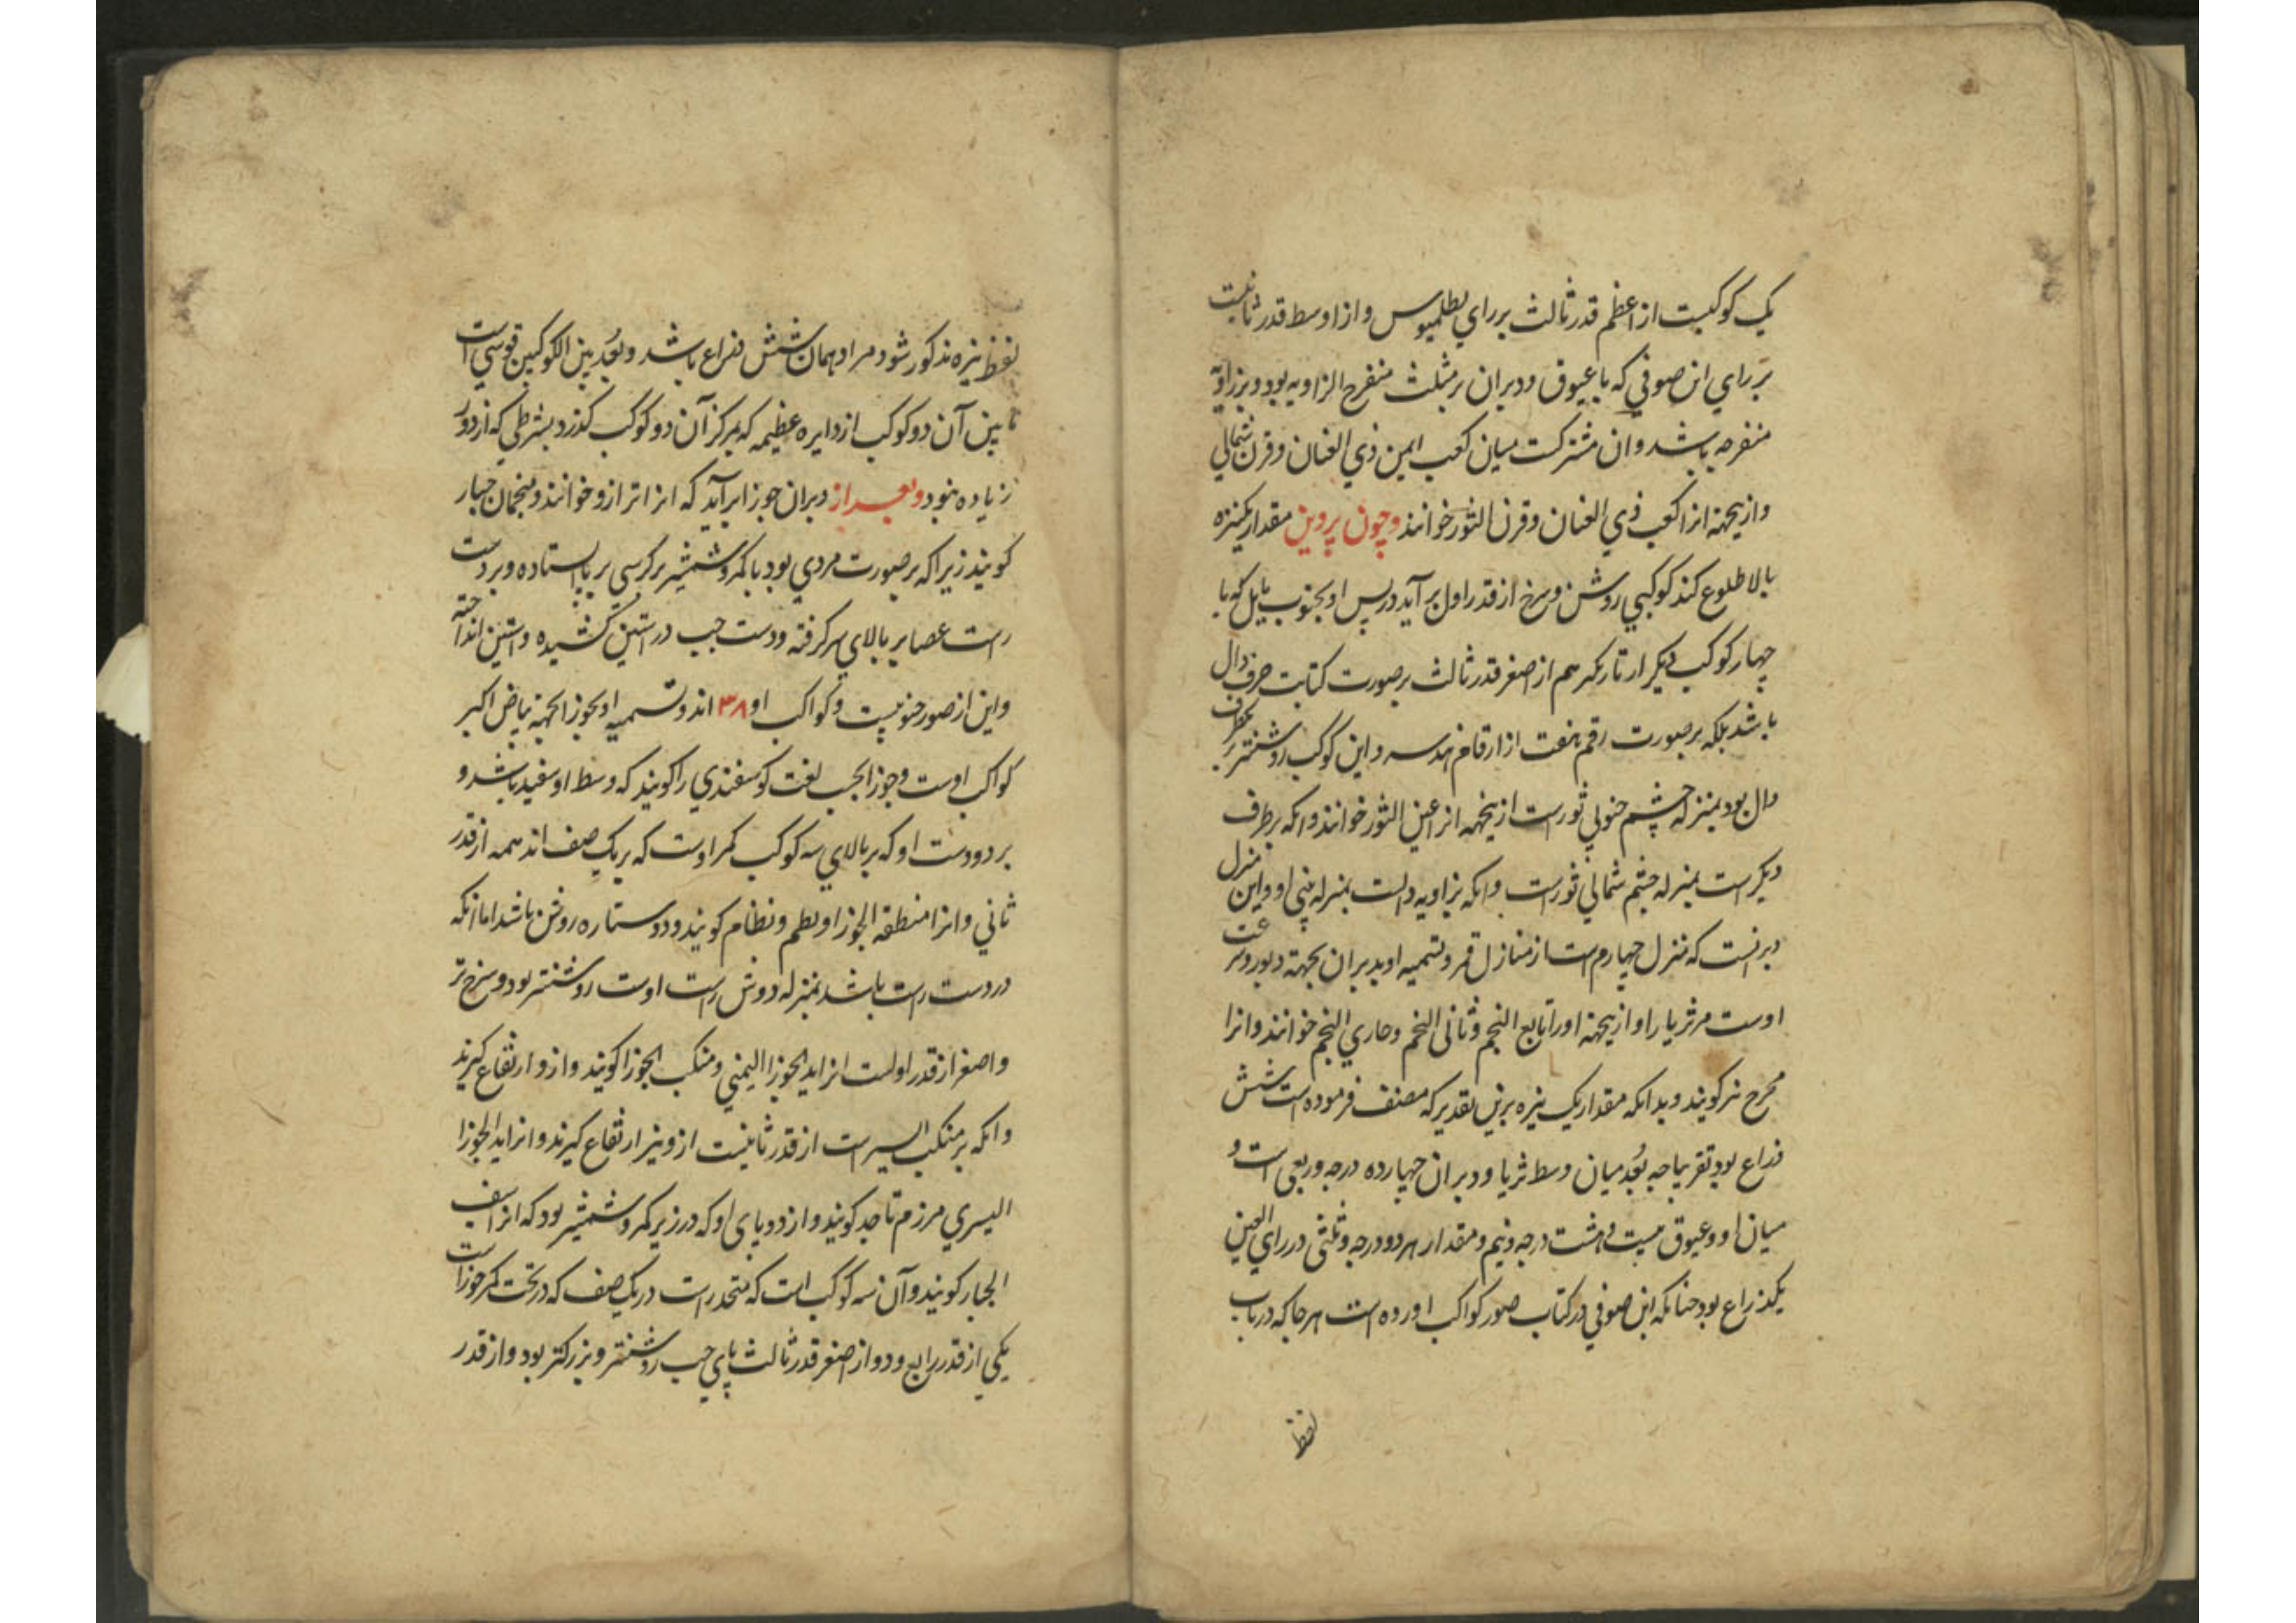 یک کوکبیست از اعظم قدر ثالث بر رای بطلمیوس و از اوسط قدر ثانیست
بر رای ابن صوفی که با عیوق و دبران بر مثلث منفرج الزاویه بود و بر زاویه
منفرجه باشد و ان مشترکست میان کعب ایمن ذی العنان و قرن شمالی
و ازینجهة انرا کعب ذی العنان و قرن الثور خوانند و چون پروین مقدار یکنیزه
بالا طلوع کند کوکبی روشن و سرخ از قدر اول بر آید در پس او بجنوب مایل که با
چهار کوکب دیکر از تاریکتر هم از اصغر قدر ثالث بر صورت کتابت حرف دال
باشد بلکه بر صورت رقم هفت از ارقام هندسه و این کوکب روشنتر بر طرف
دال بود بمنزله چشم جنوبی ثورست ازینجهه انرا عین الثور خوانند و انکه بر طرف
دیکرست بمنزله چشم شمالی ثورست و انکه بزاویه دالست بمنزله بینی او و این منزل
دبرانست که منزل چهارم است از منازل قمر و تسمیه او بدبران بجهة دبور و
اوست مر ثریا را و ازینجهة او را تابع النجم و ثانی النجم و حادی النجم خوانند و انرا
مجدح نیز کویند و بدانکه مقدار یک نیزه برین تقدیر که مصنف فرموده است شش
ذراع بود تقریبا چه بُعد میان وسط ثریا و دبران چهارده درجه و ربعی است و
میان او و عیوق بیست و هشت درجه و نیم و مقدار هر دو درجه و ثلثی در رای العین
یکذراع بود چنانکه ابن صوفی در کتاب صور کواکب اورده است هر جا که در باب
لفظ
لفظ نیزه مذکور شود مراد همان شش ذراع باشد و بُعد بین الکوکبین قوسی است
ما بین آن دو کوکب از دایره عظیمه که بمرکز آن دو کوکب کذرد بشرطی که از دور
زیاده نبود و بعد از دبران جوزا بر آید که انرا ترازو خوانند و منجمان جبار
کویند زیرا که بر صورت مردی بود با کمر و شمشیر بر کرسی بر پا ایستاده و بر دست
راست عصا بر بالای سر کرفته و دست چپ در استین کشیده و استین انداخته
و این از صور جنوبیست و کواکب او ۳۸ اند و تسمیه او بجوزا بجهة بیاض اکبر
کواکب اوست و جوزا بحسب لغت کوسفندی را کویند که وسط او سفید باشد و
بر دو دست او که بر بالای سه کوکب کمر اوست که بر یک صف اند همه از قدر
ثانی و انرا منطقة الجوزا و نظم و نظام کویند و دو ستاره روشن باشد اما انکه
در دست راست باشد بمنزله دوش راست اوست روشنتر بود و سرخ تر
و اصغر از قدر اولست انرا ید الجوزا الیمنی و منکب الجوزا کویند و ازو ارتفاع کیرند
و انکه بر منکب ایسرست از قدر ثانیست ازو نیز ارتفاع کیرند و انرا ید الجوزا
الیسری مرزم ناجد کویند و از دو پای او که در زیر کمر و شمشیر بود که انرا سیف
الجبار کویند و آن سه کوکب است که منحدرست در یک صف که در تحت کمر جوزاست
یکی از قدر رابع و دو از اصغر قدر ثالث پای چپ روشنتر و بزرکتر بود و از قدر